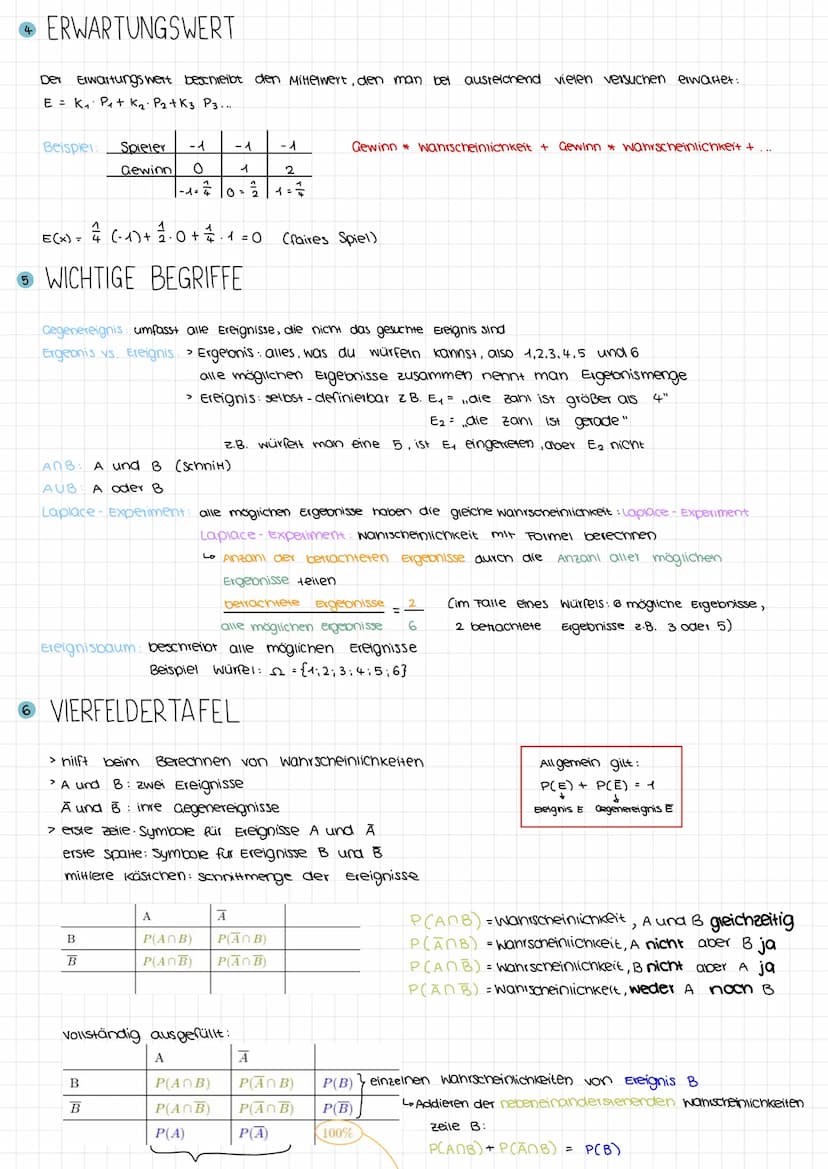 4 ERWARTUNGSWERT
Der Erwartungswert beschreibt den Mittelwert, den man bei ausreichend vielen Versuchen erwartet:
E = K₁ · P₁ + K₂ · P₂ + K₃ P₃...
Beispiel: Spieler -1 -1 -1 Gewinn * Wahrscheinlichkeit + Gewinn * Wahrscheinlichkeit + ...
Gewinn 0 1 2
-1 = 1/4 0 = 1/2 1 = 1/4
E(x) = 1/4 (-1) + 1/2 · 0 + 1/4 · 1 = 0 (faires Spiel)
5 WICHTIGE BEGRIFFE
Gegenereignis: umfasst alle Ereignisse, die nicht das gesuchte Ereignis sind
Ergebnis vs. Ereignis: > Ergebnis: alles, was du würfeln kannst, also 1,2,3,4,5 und 6
alle möglichen Ergebnisse zusammen nennt man Ergebnismenge
> Ereignis: selbst-definierbar z.B. E₁ = „die Zahl ist größer als 4"
E₂ = „die Zahl ist gerade"
z.B. würfelt man eine 5, ist E₁ eingetreten, aber E₂ nicht
A∩B: A und B (Schnitt)
A∪B: A oder B
Laplace-Experiment: alle möglichen Ergebnisse haben die gleiche Wahrscheinlichkeit: Laplace-Experiment
Laplace-Experiment: Wahrscheinlichkeit mit Formel berechnen
↳ Anzahl der betrachteten Ergebnisse durch die Anzahl aller möglichen
Ergebnisse teilen
betrachtete Ergebnisse = 2 (im Falle eines Würfels: 6 mögliche Ergebnisse,
alle möglichen Ergebnisse 6 2 betrachtete Ergebnisse z.B. 3 oder 5)
Ereignisbaum: beschreibt alle möglichen Ereignisse
Beispiel Würfel: Ω = {1; 2; 3; 4; 5; 6}
6 VIERFELDERTAFEL
> hilft beim Berechnen von Wahrscheinlichkeiten
> A und B: zwei Ereignisse
A̅ und B̅: ihre Gegenereignisse
> erste Zeile: Symbole für Ereignisse A und A̅
erste Spalte: Symbole für Ereignisse B und B̅
mittlere Kästchen: Schnittmenge der Ereignisse
Allgemein gilt:
P(E) + P(E̅) = 1
↓ ↓
Ereignis E Gegenereignis E̅
A A̅
B P(A∩B) P(A̅∩B)
B̅ P(A∩B̅) P(A̅∩B̅)
P(A∩B) = Wahrscheinlichkeit, A und B gleichzeitig
P(A̅∩B) = Wahrscheinlichkeit, A nicht aber B ja
P(A∩B̅) = Wahrscheinlichkeit, B nicht aber A ja
P(A̅∩B̅) = Wahrscheinlichkeit, weder A noch B
vollständig ausgefüllt:
A A̅
B P(A∩B) P(A̅∩B) P(B) } einzelnen Wahrscheinlichkeiten von Ereignis B
B̅ P(A∩B̅) P(A̅∩B̅) P(B̅) ↳ Addieren der nebeneinanderstehenden Wahrscheinlichkeiten
P(A) P(A̅) 100% Zeile B:
P(A∩B) + P(A̅∩B) = P(B)